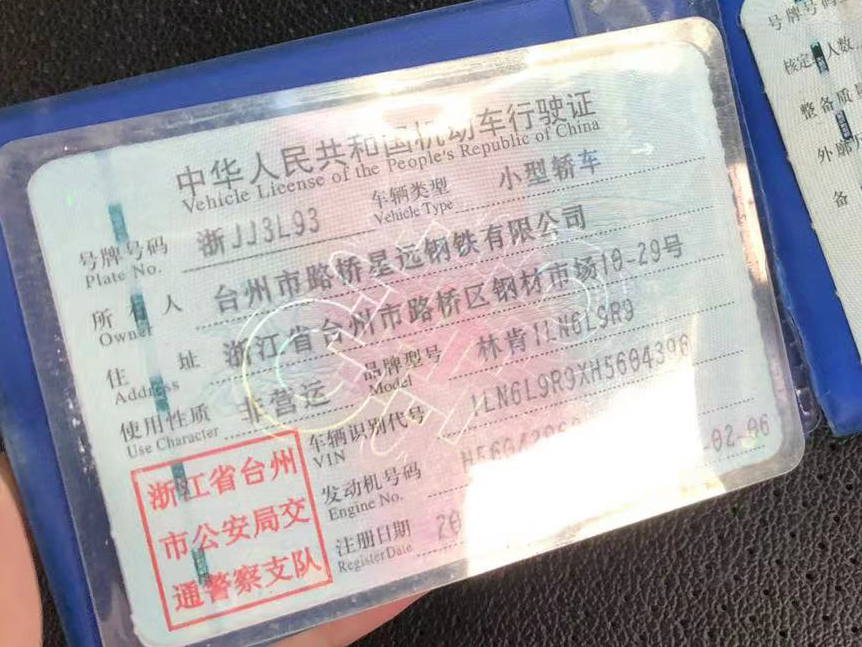 中华人民共和国机动车行驶证
Vehicle License of the People's Republic of China
号牌号码 浙JJ3L93 车辆类型 小型轿车
Plate No. Vehicle Type
所有人 台州市路桥星远钢铁有限公司
Owner
住址 浙江省台州市路桥区钢材市场10-29号
Address
使用性质 非营运 品牌型号 林肯1LN6L9R9
Use Character Model
车辆识别代号 1LN6L9R9XH5604396
VIN
发动机号码
Engine No.
注册日期 20 -02-06
Register Date
浙江省台州
市公安局交
通警察支队
号牌号码
核定 人数
整备质
外廓
备